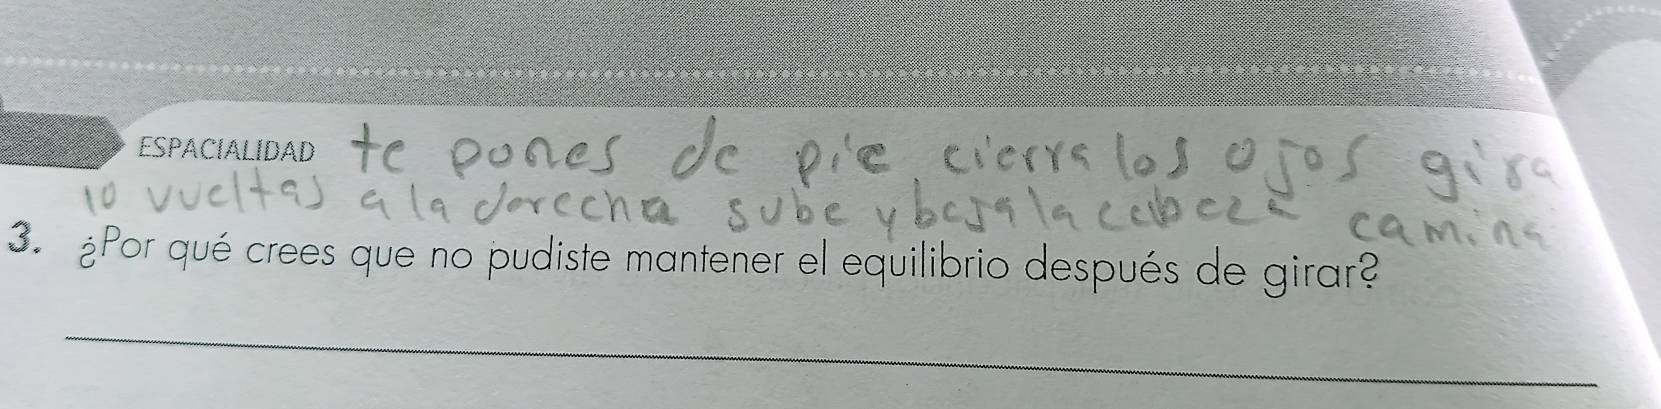 ESPACIALIDAD te pones de pie, cierra los ojos gira
10 vueltas a la derecha sube y baja la cabeza camina
3. ¿Por qué crees que no pudiste mantener el equilibrio después de girar?